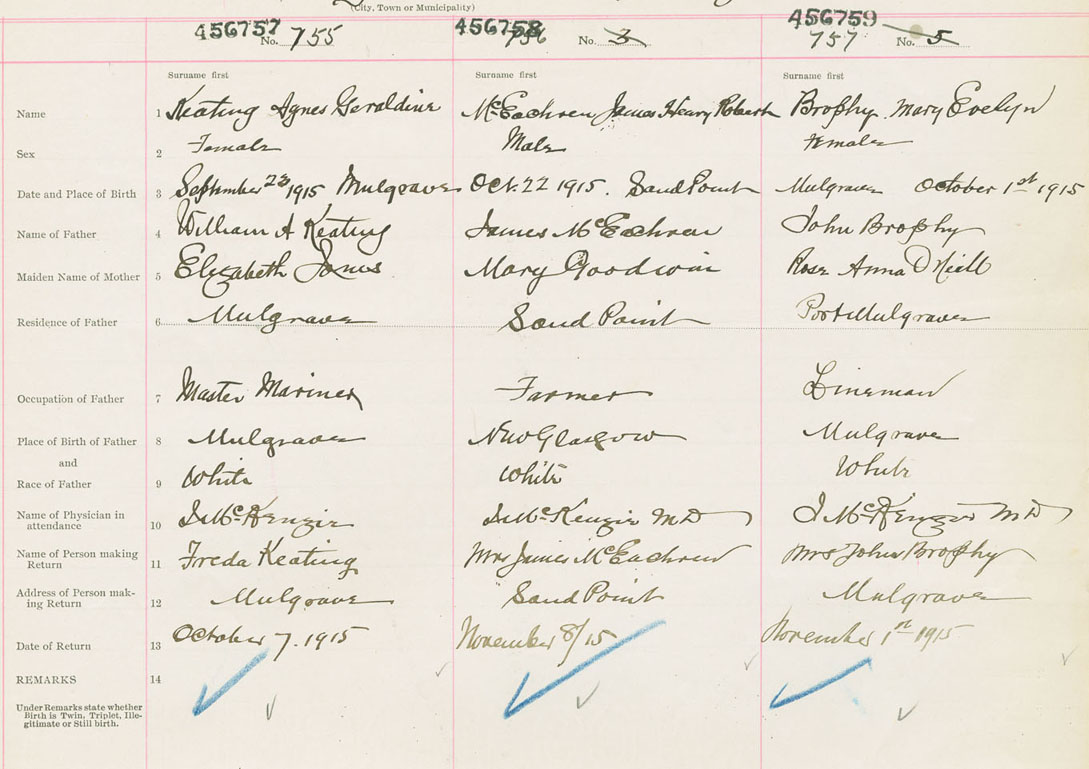 (City, Town or Municipality)
456757 456758 456759
No. 755 756 No. 3 757 No. 5
Surname first Surname first Surname first
Name 1 Keating Agnes Geraldine McEachren James Henry Robert Brophy Mary Evelyn
Sex 2 Female Male Female
Date and Place of Birth 3 September 23 1915 Mulgrave Oct. 22 1915. Sand Point Mulgrave October 1st 1915
Name of Father 4 William A Keating James McEachren John Brophy
Maiden Name of Mother 5 Elizabeth Jones Mary Goodwin Rose Anna O'Niell
Residence of Father 6 Mulgrave Sand Point Port Mulgrave
Occupation of Father 7 Master Mariner Farmer Lineman
Place of Birth of Father 8 Mulgrave New Glasgow Mulgrave
and
Race of Father 9 White White White
Name of Physician in
attendance 10 McKenzie McKenzie MD McKenzie MD
Name of Person making
Return 11 Freda Keating Mrs James McEachren Mrs John Brophy
Address of Person mak-
ing Return 12 Mulgrave Sand Point Mulgrave
Date of Return 13 October 7. 1915 November 8/15 November 1st 1915
REMARKS 14
Under Remarks state whether
Birth is Twin, Triplet, Ille-
gitimate or Still birth.